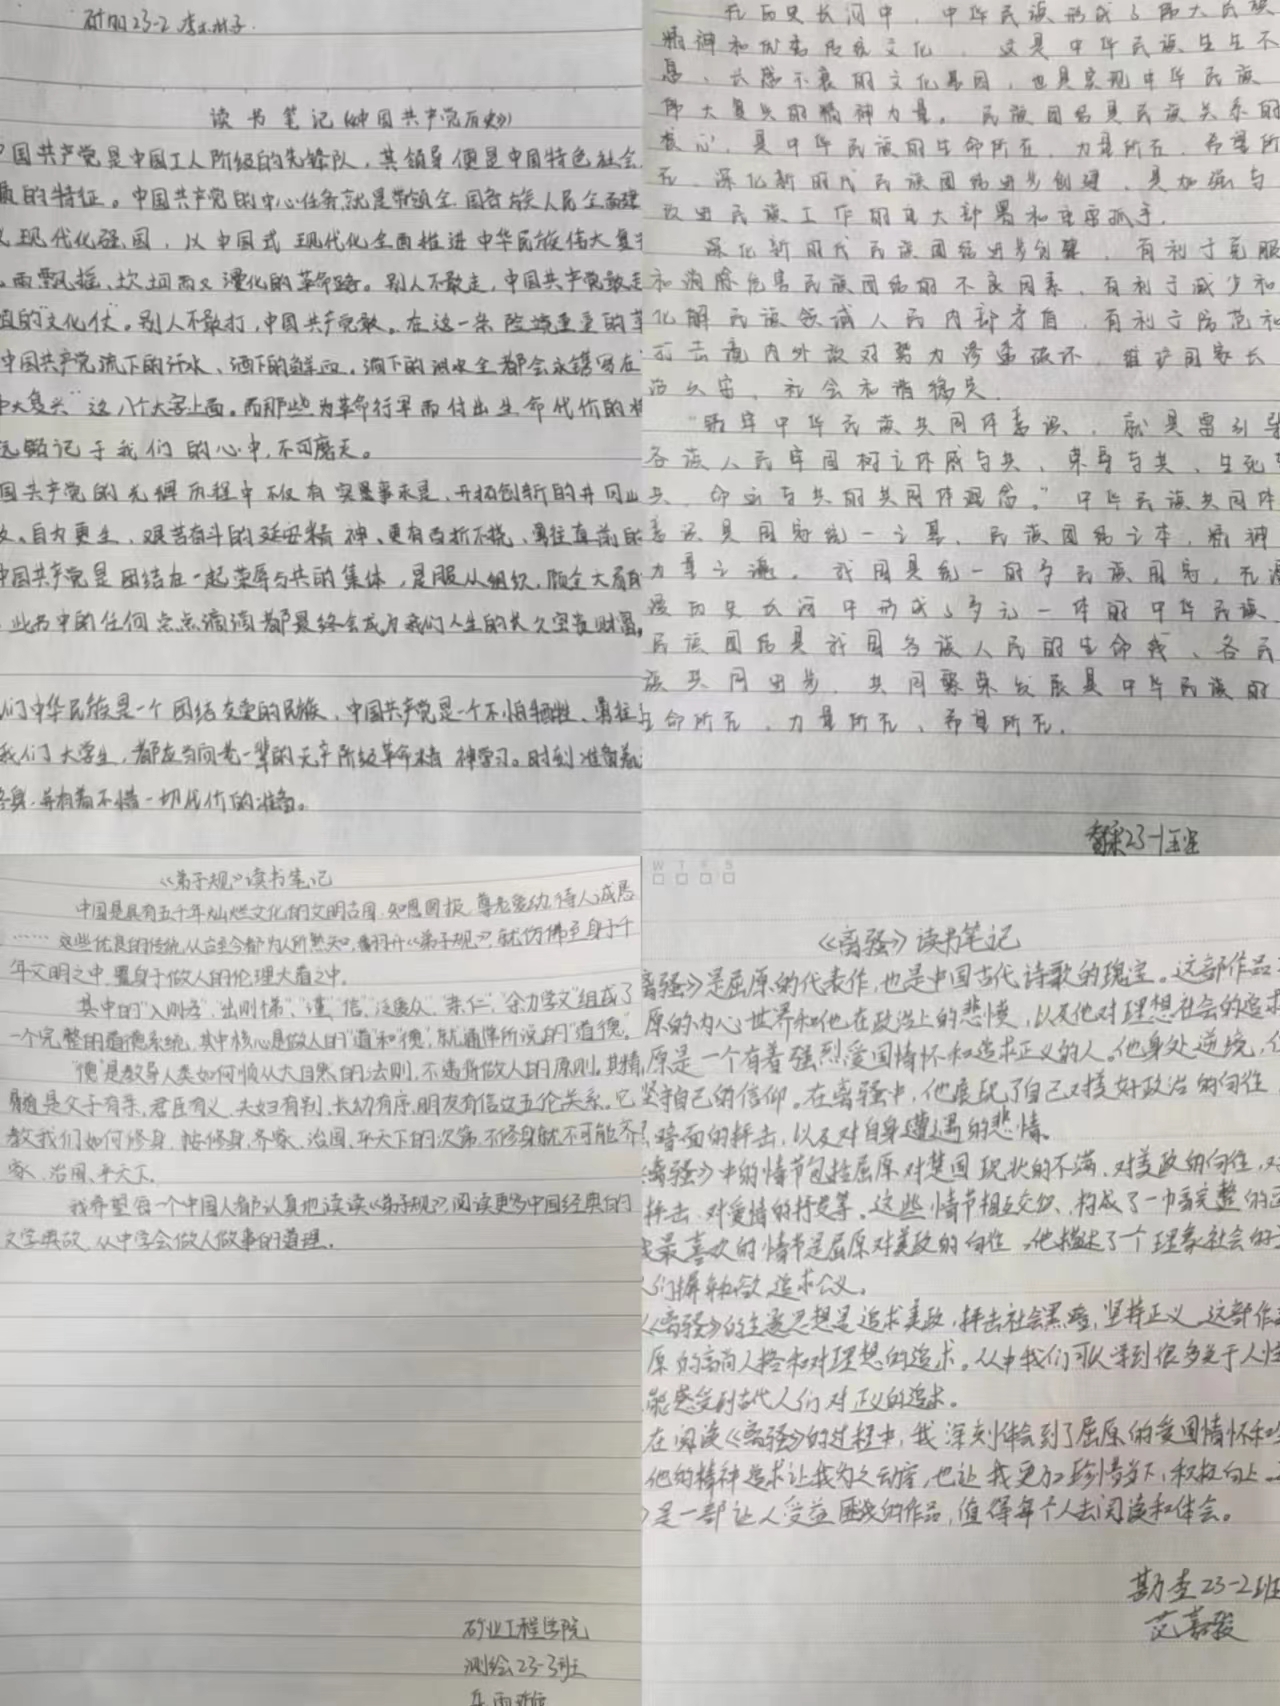 读书笔记《中国共产党历史》
中国共产党是中国工人阶级的先锋队，其领导便是中国特色社会
质的特征。中国共产党的中心任务就是带领全国各族人民全面建
现代化强国，以中国式现代化全面推进中华民族伟大复兴
雨飘摇、坎坷而又漫化的革命路。别人不敢走，中国共产党敢走
值的“文化仗”。别人不敢打，中国共产党敢。在这一条险境重重的革
中国共产党流下的汗水、洒下的鲜血。滴下的泪水全都会永镌写在
大复兴”这八个大字上面。而那些为革命行军而付出生命代价的
远铭记于我们的心中，不可磨灭。
国共产党的光辉历程中不仅有实事求是、开拓创新的井冈山
自力更生、艰苦奋斗的延安精神、更有百折不挠、勇往直前的
中国共产党是团结在一起荣辱与共的集体，是服从组织，顾全大局的
此书中的任何点点滴滴都最终会成为我们人生的长久宝贵财富。
们中华民族是一个团结友爱的民族，中国共产党是一个不怕牺牲、勇往
我们大学生，都应当向老一辈的无产阶级革命精神学习。时刻准备着
终身，并有着不惜一切代价的准备。
在历史长河中，中华民族形成了伟大民族
精神和优秀传统文化，这是中华民族生生不
息、长盛不衰的文化基因，也是实现中华民族
伟大复兴的精神力量。民族团结是民族关系的
核心，是中华民族的生命所在、力量所在、希望所
在，深化新时代民族团结进步创建，是加强与
改进民族工作的重大部署和重要抓手。
深化新时代民族团结进步创建，有利于克服
和消除危害民族团结的不良因素，有利于减少和
化解民族领域人民内部矛盾，有利于防范和
打击境内外敌对势力渗透破坏，维护国家长
治久安、社会和谐稳定
“铸牢中华民族共同体意识，就是要引导
各族人民牢固树立休戚与共、荣辱与共、生死与
共、命运与共的共同体理念。”中华民族共同体
意识是国家统一之基、民族团结之本，精神
力量之源。我国是统一的多民族国家，在漫
漫历史长河中形成了多元一体的中华民族，
民族团结是我国各族人民的生命线、各民
族共同进步、共同繁荣发展是中华民族的
生命所在、力量所在、希望所在。
23-1
《弟子规》读书笔记
中国是具有五千年灿烂文化的文明古国，知恩图报，尊老爱幼，待人诚恳
……这些优良的传统，从古至今都为人所熟知，翻开《弟子规》，就仿佛置身于千
年文明之中，置身于做人的伦理大道之中。
其中的“入则孝”“出则悌”、“谨”、“信”、“泛爱众”、“亲仁”、“余力学文”组成了
一个完整的道德系统，其中核心是做人的“道”和“德”，就通俗所说的“道德”。
“德”是教导人类如何顺从大自然的法则，不违背做人的原则。其精
髓是父子有亲，君臣有义，夫妇有别，长幼有序，朋友有信这五伦关系。它
教我们如何修身，按修身、齐家、治国、平天下的次第，不修身就不可能齐
家、治国、平天下。
我希望每一个中国人都认真地读读《弟子规》，阅读更多中国经典的
文学典故，从中学会做人做事的道理。
矿业工程学院
测绘23-3班
W T F S
《离骚》读书笔记
离骚》是屈原的代表作，也是中国古代诗歌的瑰宝。这部作品
原的内心世界和他在政治上的悲愤，以及他对理想社会的追求
原是一个有着强烈爱国情怀和追求正义的人。他身处逆境，
坚持自己的信仰。在离骚中，他展现了自己对美好政治的向往
暗面的抨击，以及对自身遭遇的悲情。
《离骚》中的情节包括屈原对楚国现状的不满、对美政的向往，对
抨击、对爱情的抒发等。这些情节相互交织，构成了一幅完整的
我最喜欢的情节是屈原对美政的向往，他描述了个理想社会的
人们摒弃私欲，追求公义。
《离骚》的主要思想是追求美政，抨击社会黑暗，坚持正义。这部作品
原的高尚人格和对理想的追求。从中我们可以学到很多关于人性
能感受到古代人们对正义的追求。
在阅读《离骚》的过程中，我深刻体会到了屈原的爱国情怀和
他的精神追求让我为之动容，也让我更加珍惜当下，积极向上。
是一部让人受益匪浅的作品，值得每个人去阅读和体会。
勘查23-2班
范嘉骏